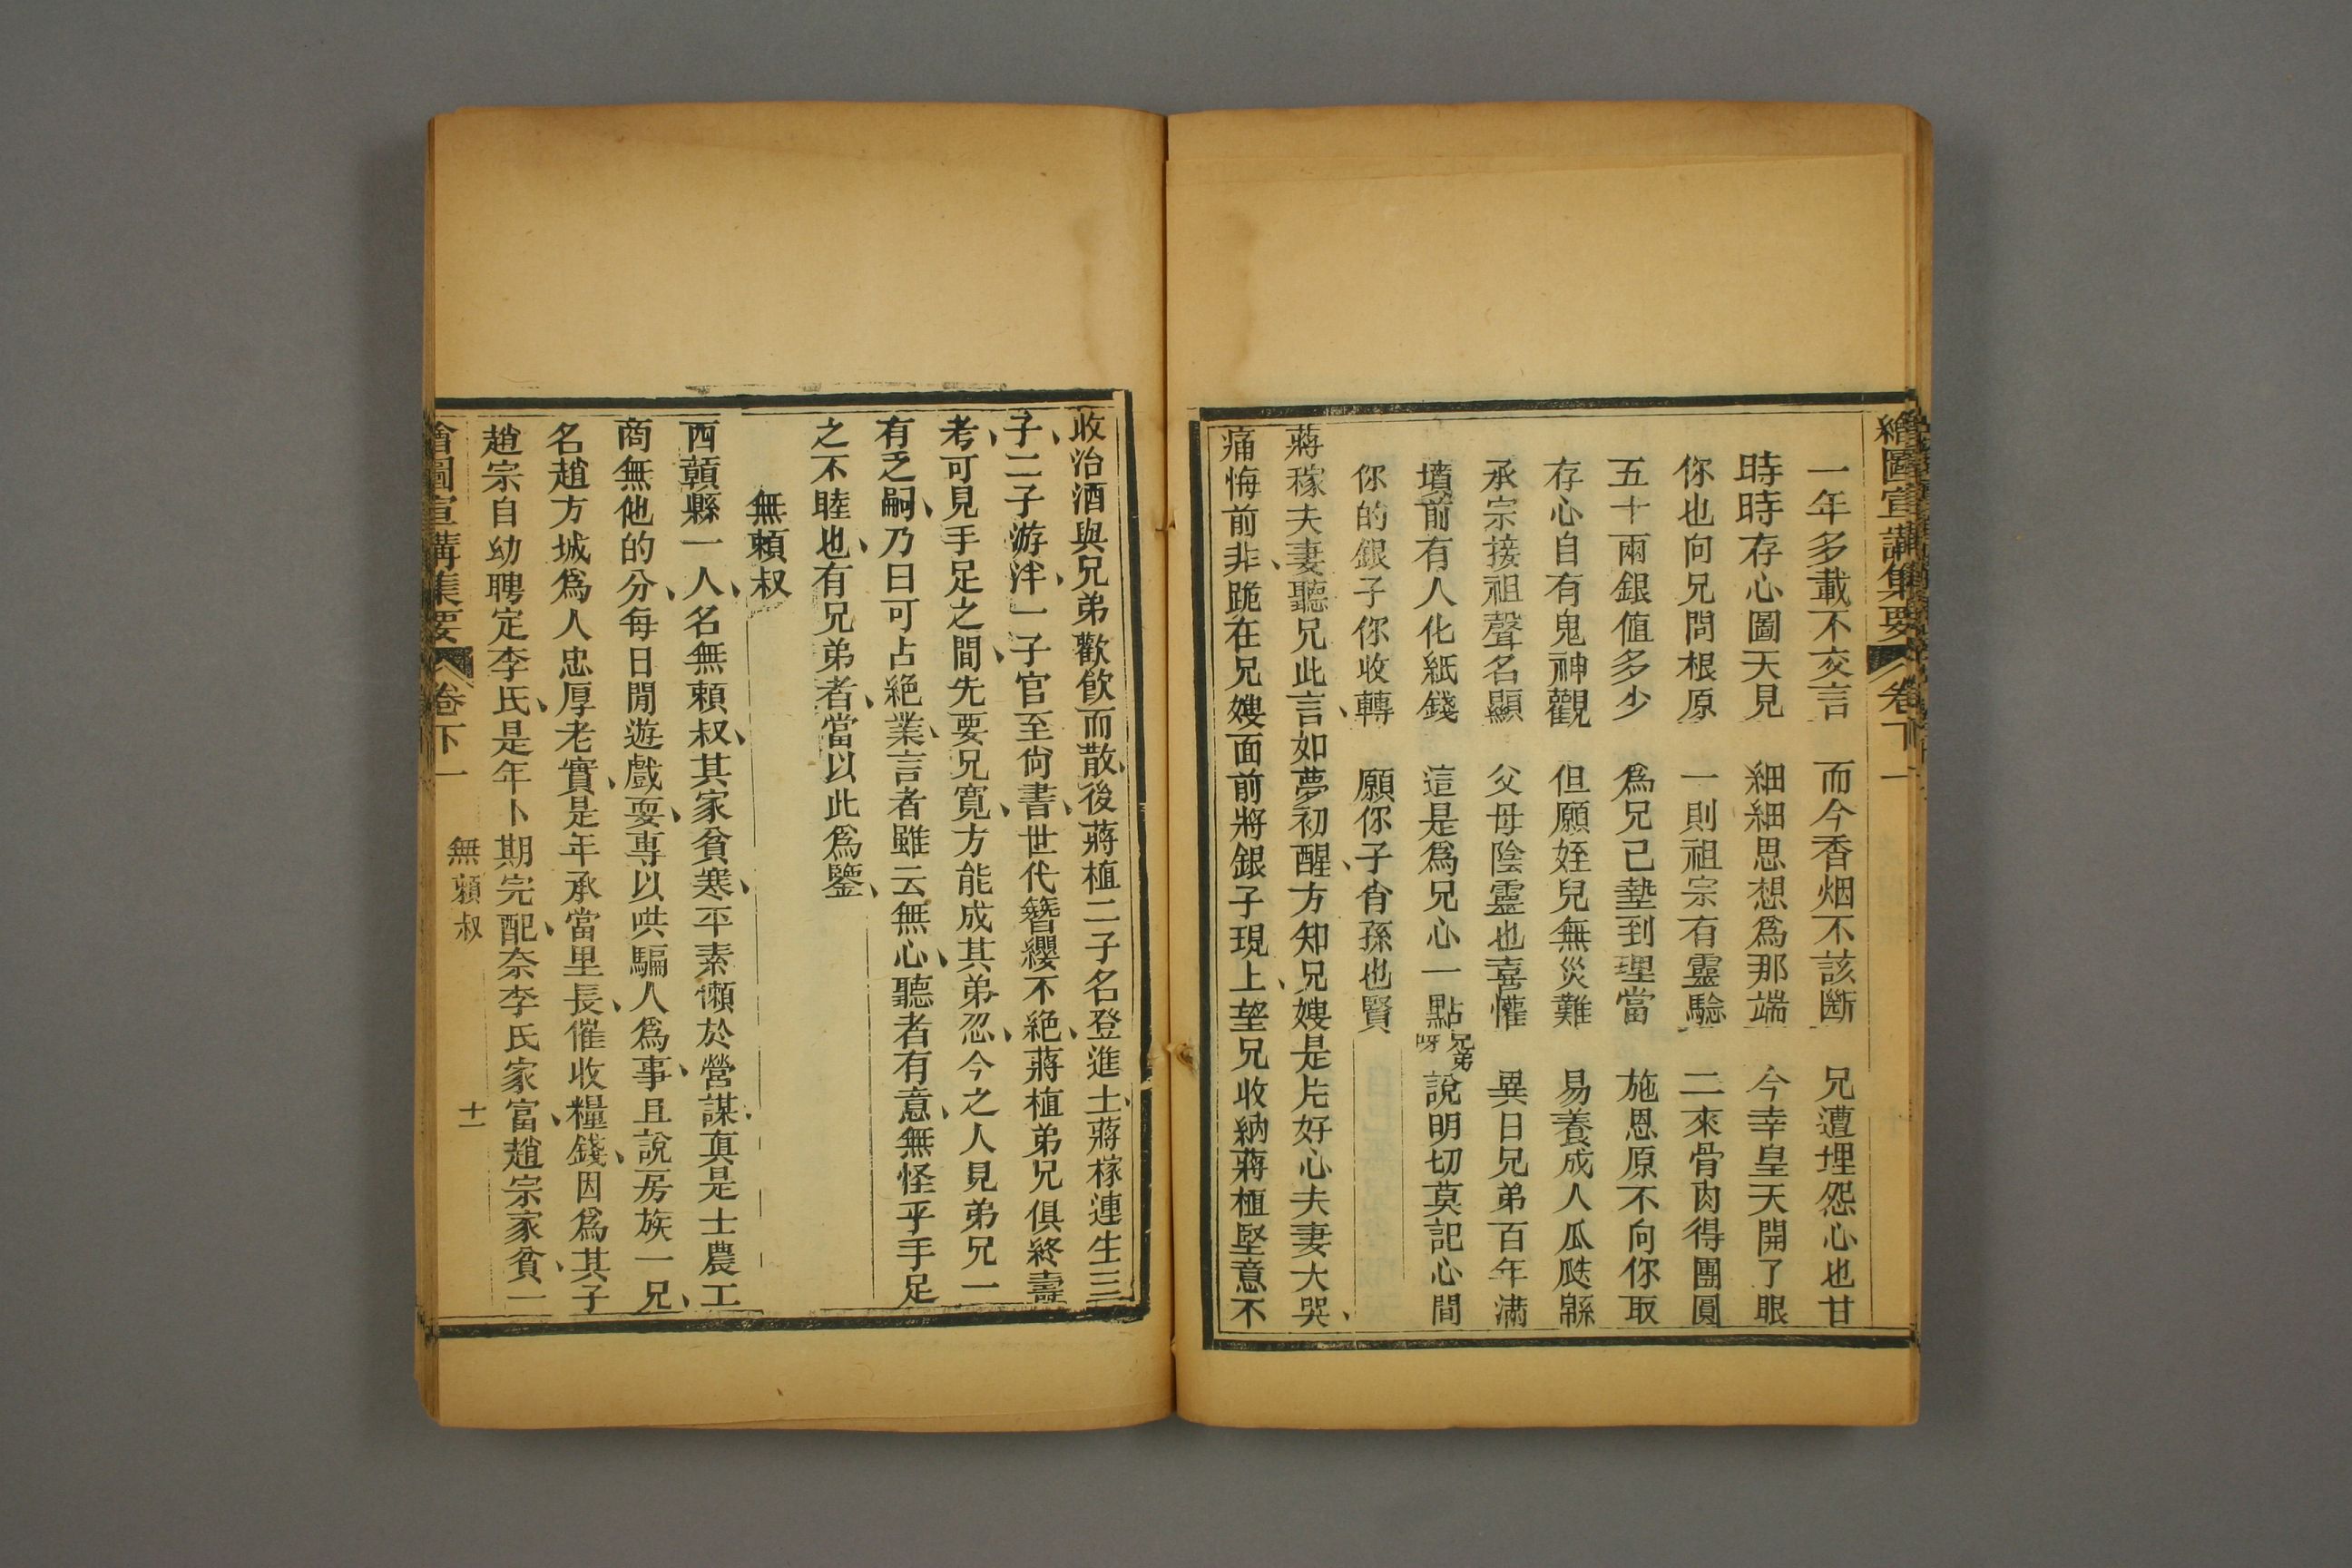 繪圖宣講集要 卷下一
一年多載不交言 而今香烟不該斷 兄遭埋怨心也甘
時時存心圖天見 細細思想為那端 今幸皇天開了眼
你也向兄問根原 一則祖宗有靈驗 二來骨肉得團圓
五十兩銀值多少 為兄已墊到理當 施恩原不向你取
存心自有鬼神觀 但願姪兒無災難 易養成人瓜瓞緜
承宗接祖聲名顯 父母陰靈也喜懽 異日兄弟百年滿
墳前有人化紙錢 這是為兄心一點 兄弟呀 說明切莫記心間
你的銀子你收轉 願你子肖孫也賢
蔣稼夫妻聽兄此言、如夢初醒、方知兄嫂是片好心夫妻大哭、
痛悔前非、跪在兄嫂面前將銀子現上、望兄收納蔣植堅意不
收治酒與兄弟歡飲而散、後蔣植二子名登進士、蔣稼連生三
子、二子游泮、一子官至尚書、世代簪纓不絕、蔣植弟兄俱終壽
考、可見手足之間、先要兄寬、方能成其弟忍、今之人見弟兄一
有乏嗣、乃曰可占絕業、言者雖云無心、聽者有意、無怪乎手足
之不睦也、有兄弟者、當以此為鑒、
無賴叔
西顛縣一人、名無賴叔、其家貧寒、平素懶於營謀、真是士農工
商無他的分、每日閒遊戲耍、專以哄騙人為事、且說房族一兄、
名趙方城為人忠厚老實、是年承當里長、催收糧錢、因為其子
趙宗自幼聘定李氏、是年卜期完配、奈李氏家富、趙宗家貧、一
繪圖宣講集要 卷下一 無賴叔 十一